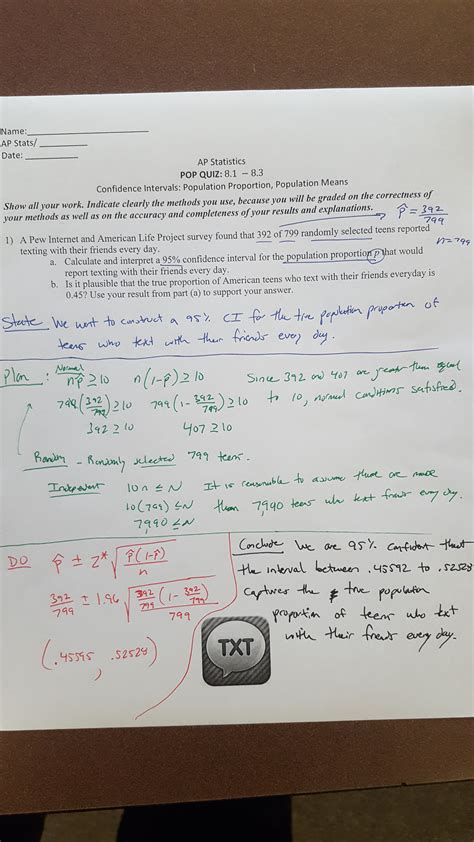 Name:
AP Stats/
Date:
AP Statistics
POP QUIZ: 8.1 – 8.3
Confidence Intervals: Population Proportion, Population Means
Show all your work. Indicate clearly the methods you use, because you will be graded on the correctness of
your methods as well as on the accuracy and completeness of your results and explanations.
p̂ = 392/799
n=799
1) A Pew Internet and American Life Project survey found that 392 of 799 randomly selected teens reported
texting with their friends every day.
a. Calculate and interpret a 95% confidence interval for the population proportion p that would
report texting with their friends every day.
b. Is it plausible that the true proportion of American teens who text with their friends everyday is
0.45? Use your result from part (a) to support your answer.
State We want to construct a 95% CI for the true population proportion of
teens who text with their friends every day.
Plan : Normal
np̂ ≥ 10 n(1-p̂) ≥ 10
799(392/799) ≥ 10 799(1-392/799) ≥ 10
392 ≥ 10 407 ≥ 10
Since 392 and 407 are greater than equal
to 10, normal conditions satisfied.
Random - Randomly selected 799 teens.
Independent 10n ≤ N It is reasonable to assume there are more
10(799) ≤ N than 7,990 teens who text every day.
7,990 ≤ N
DO p̂ ± z* √(p̂(1-p̂)/n)
392/799 ± 1.96 √(392/799(1-392/799)/799)
(.45595, .52528)
Conclude We are 95% confident that
the interval between .45592 to .52528
captures the true population
proportion of teens who text
with their friends every day.
TXT